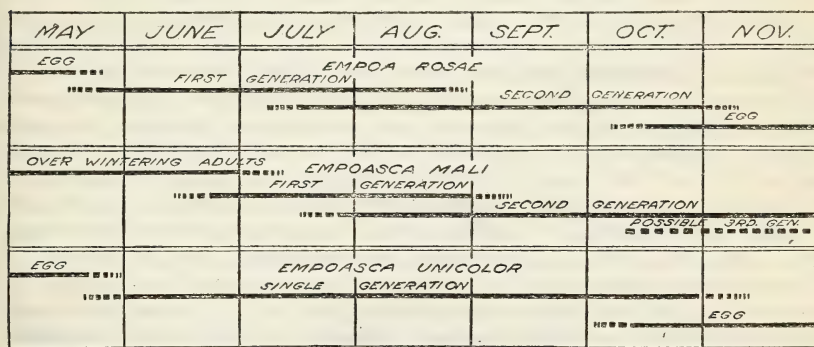 MAY JUNE JULY AUG. SEPT. OCT. NOV.
EGG EMPOA ROSAE
FIRST GENERATION
SECOND GENERATION
EGG
OVER WINTERING ADULTS EMPOASCA MALI
FIRST GENERATION
SECOND GENERATION
POSSIBLE 3RD. GEN.
EGG EMPOASCA UNICOLOR
SINGLE GENERATION
EGG